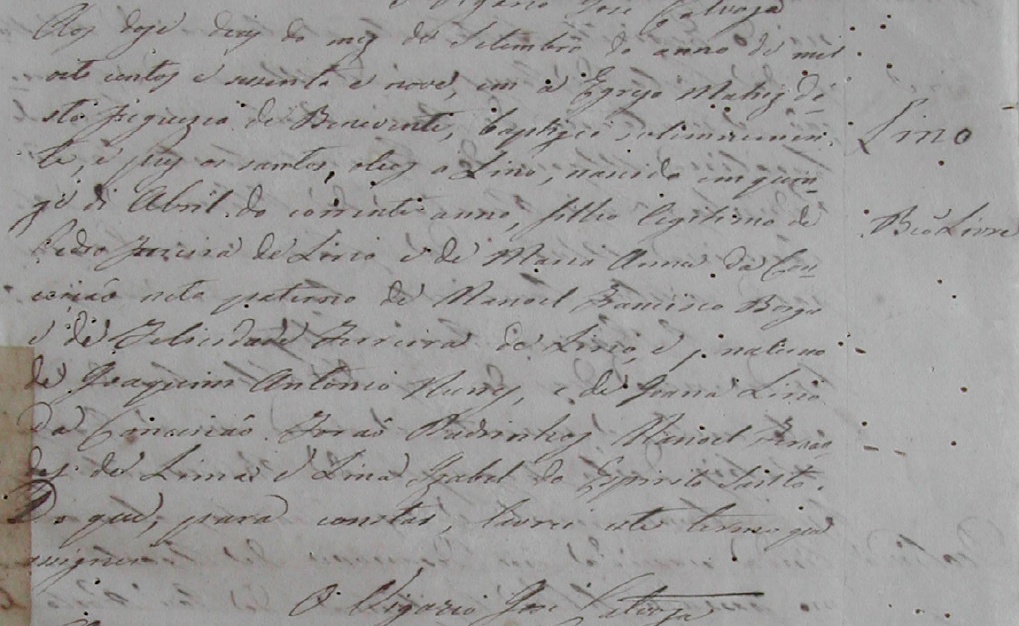 O Vigario José
Aos doze dias do mez de Setembro do anno de mil
oito centos e secenta e nove, em a Egreja Matriz de
sta freguezia de Benevente, baptizei solemnemen
te, e puz os santos oleos a Lino, nascido em quin
ze de Abril do corrente anno, filho legitimo de
Pedro Ferreira de Lirio e de Maria Anna da Con
ceicão neto paterno de Manoel Francisco Braga
e de Felicidade Ferreira de Lirio, e materno
de Joaquim Antonio Nunes, e de Joana Lirio
da Conceicão. Forão Padrinhos Manoel
de Lima e Lina Izabel do Espirito Santo.
Do que, para constar, lavrei este termo que
assignei
O Vigario José
Lino
Livre